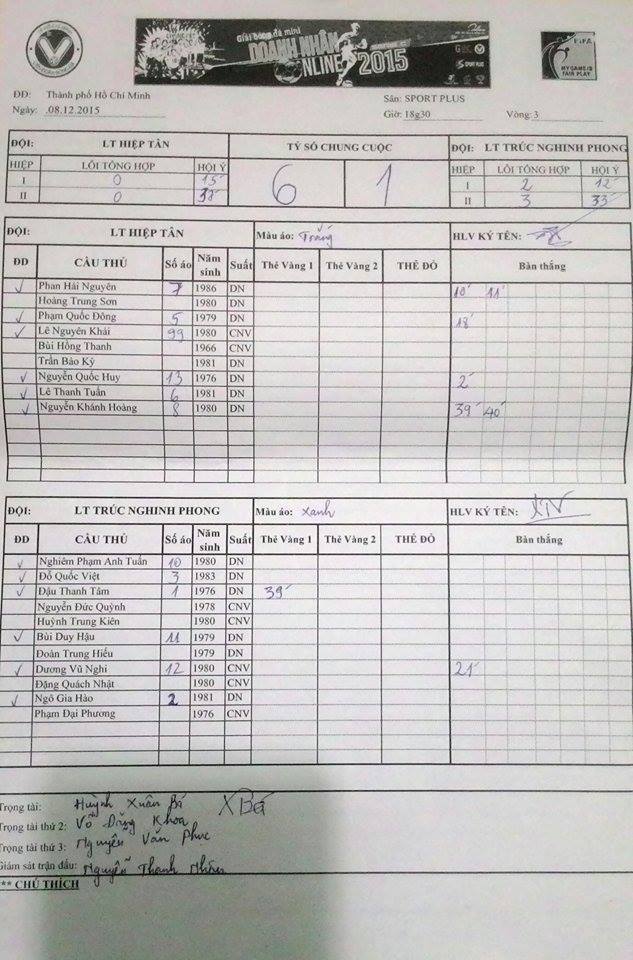 Giải bóng đá mini
DOANH NHÂN
ONLINE 2015
SPORT PLUS
FIFA
MY GAME IS
FAIR PLAY
ĐĐ: Thành phố Hồ Chí Minh Sân: SPORT PLUS
Ngày: 08.12.2015 Giờ: 18g30 Vòng: 3
ĐỘI: LT HIỆP TÂN TỶ SỐ CHUNG CUỘC ĐỘI: LT TRÚC NGHINH PHONG
HIỆP LỖI TỔNG HỢP HỘI Ý 6 1 HIỆP LỖI TỔNG HỢP HỘI Ý
I 0 15' I 2 12'
II 0 38' II 3 33'
ĐỘI: LT HIỆP TÂN Màu áo: Trắng HLV KÝ TÊN:
ĐD CẦU THỦ Số áo Năm sinh Suất Thẻ Vàng 1 Thẻ Vàng 2 THẺ ĐỎ Bàn thắng
✓ Phan Hải Nguyên 7 1986 DN 10' 11'
Hoàng Trung Sơn 1980 DN
✓ Phạm Quốc Đông 5 1979 DN 18'
✓ Lê Nguyên Khải 99 1980 CNV
Bùi Hồng Thanh 1966 CNV
Trần Bảo Kỳ 1981 DN
✓ Nguyễn Quốc Huy 13 1976 DN 2'
✓ Lê Thanh Tuấn 6 1981 DN
✓ Nguyễn Khánh Hoàng 8 1980 DN 39' 40'
ĐỘI: LT TRÚC NGHINH PHONG Màu áo: Xanh HLV KÝ TÊN:
ĐD CẦU THỦ Số áo Năm sinh Suất Thẻ Vàng 1 Thẻ Vàng 2 THẺ ĐỎ Bàn thắng
✓ Nghiêm Phạm Anh Tuấn 10 1980 DN
✓ Đỗ Quốc Việt 3 1983 DN
✓ Đậu Thanh Tâm 1 1976 DN 39'
Nguyễn Đức Quỳnh 1978 CNV
Huỳnh Trung Kiên 1980 CNV
✓ Bùi Duy Hậu 11 1979 DN
Đoàn Trung Hiếu 1979 DN
✓ Dương Vũ Nghi 12 1980 CNV 21'
Đặng Quách Nhật 1980 CNV
✓ Ngô Gia Hào 2 1981 DN
Phạm Đại Phương 1976 CNV
Trọng tài: Huỳnh Xuân Bá XBá
Trọng tài thứ 2: Võ Đăng Khoa
Trọng tài thứ 3: Nguyễn Văn Phúc
Giám sát trận đấu: Nguyễn Thanh
** CHÚ THÍCH